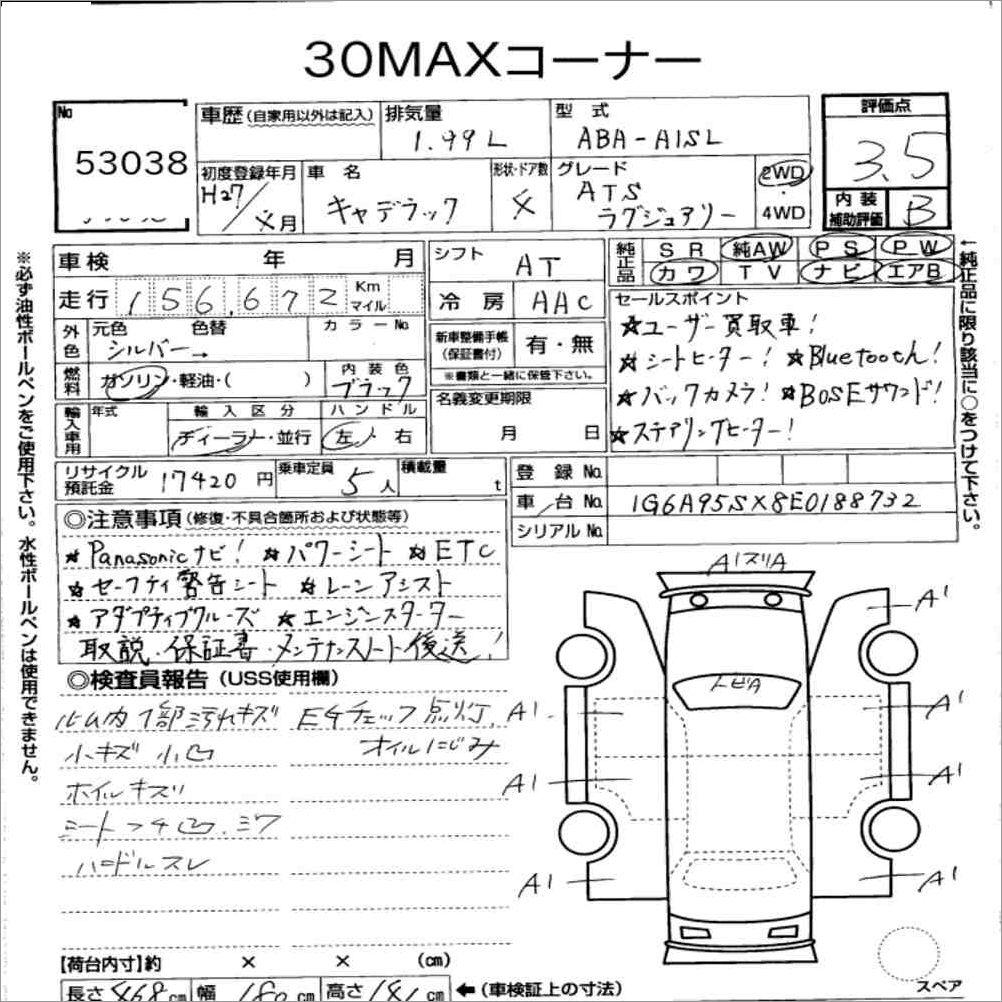 30MAXコーナー
No
53038
車歴(自家用以外は記入)
排気量
1.99L
型式
ABA-A1SL
評価点
3.5
初度登録年月
H27/ 月
車名
キャデラック
形状・ドア数
4
グレード
ATS
ラグジュアリー
2WD
・
4WD
内装
補助評価
B
車検 年 月
シフト
AT
純正品
SR 純AW PS PW
カワ TV ナビ エアB
走行
156,672
Km
マイル
冷房
AAC
セールスポイント
☆ユーザー買取車!
☆シートヒーター! ☆Bluetooth!
☆バックカメラ! ☆BOSEサウンド!
☆ステアリングヒーター!
外色
元色 色替
シルバー→
カラーNo
新車整備手帳
(保証書付)
有・無
※書類と一緒に保管下さい。
燃料
ガソリン・軽油・( )
内装色
ブラック
名義変更期限
月 日
輸入車用
年式
輸入区分
ディーラー・並行
ハンドル
左・右
リサイクル
預託金
17420円
乗車定員
5人
積載量
t
登録No.
車台No.
1G6A95SX8E0188732
シリアルNo.
◎注意事項(修復・不具合箇所および状態等)
☆Panasonicナビ! ☆パワーシート ☆ETC
☆セーフティ警告シート ☆レーンアシスト
☆アダプティブクルーズ ☆エンジンスターター
取説・保証書・メンテナンスノート後送!
◎検査員報告(USS使用欄)
ルーム内1部汚れキズ
Egチェック点灯
小キズ小凹
オイルにじみ
ホイルキズ
シート
ハンドルスレ
A1スリA
A1
トビA
A1
A1
A1
A1
A1
A1
【荷台内寸】約 × × (cm)
長さ468cm
幅180cm
高さ141cm
←(車検証上の寸法)
スペア
※必ず油性ボールペンをご使用下さい。水性ボールペンは使用できません。
←純正品に限り該当に○をつけて下さい。